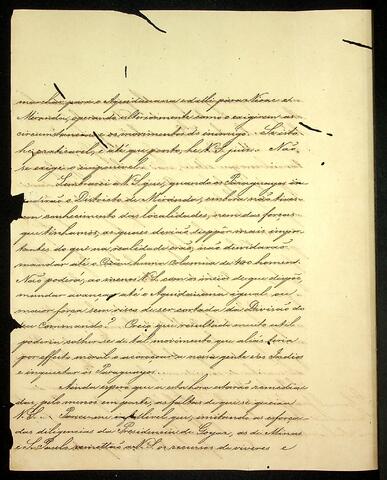 marchar para o Aquidauana e dalli para Nioac e
Miranda, operando ulteriormente como o exigirem as
circumstancias e os movimentos do inimigo. Se isto
he praticavel, e até que ponto, he V.S. juiz. Não
se exige o impossivel.
Lembrarei a V.S. que, quando os Paraguayos in
vadirão o Districto de Miranda, embora não tives
sem conhecimento das localidades, nem das forças
que tinhamos, as quais devião suppôr mais impor
tantes do que na realidade erão, não duvidarão
mandar até o Coxim huma columna de 400 homens.
Não poderá, ao menos V.S. com os meios de que dispõe,
mandar avançar até o Aquidauana igual, ou
maior força sem risco de ser cortada da Divisão do
seu Commando? Creio que resultado muito util
poderia colher-se de tal movimento que alias teria
por effeito moral o acoroçoar a nossa gente e os Indios
e inquietar os Paraguayos.
Ainda espero que a esta hora estarão remedia
das, pelo menos em parte, as faltas de que se queixa
V.S. Parece-me que, imitando os esforços
das diligencias da Presidencia de Goyaz, as de Minas
e S. Paulo remettão a V.S. os recursos de viveres e